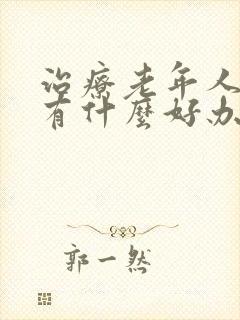 治療老年人
有什麼好办
郭一然